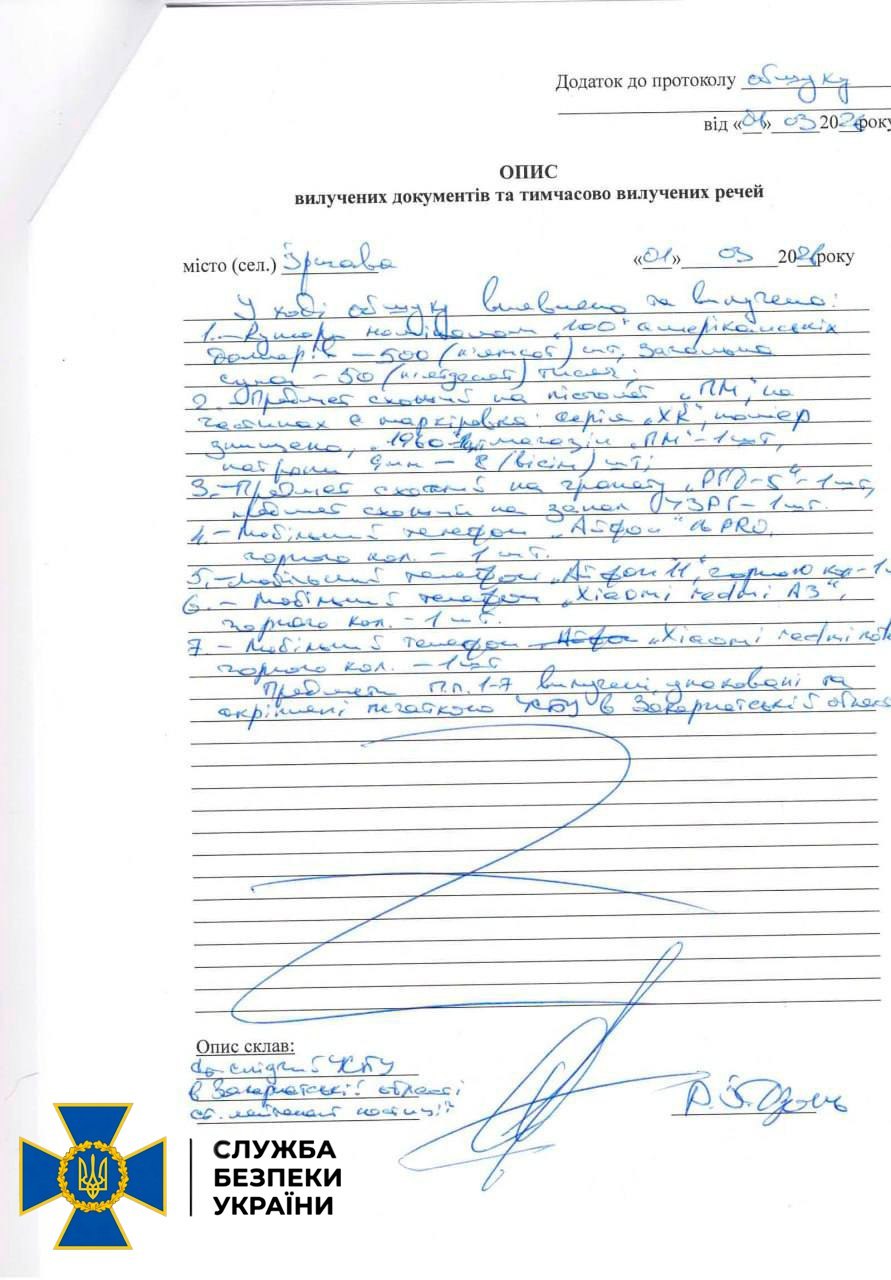 Додаток до протоколу обшуку
від «01» 03 2026 року
ОПИС
вилучених документів та тимчасово вилучених речей
місто (сел.) Іршава «01» 03 2026 року
У ході обшуку виявлено та вилучено:
1. – Купюри номіналом „100“ американських
доларів – 500 (п'ятсот) шт, загальна
сума – 50 (п'ятдесят) тисяч;
2. – Предмет схожий на пістолет „ПМ“, на
частинах є маркіровка: серія „ХК“, номер
знищено, „1960 магазин „ПМ“ – 1 шт,
патрони 9мм – 8 (вісім) шт;
3. – Предмет схожий на гранату „РГД-5“ – 1 шт,
предмет схожий на запал УЗРГ – 1 шт.
4. – Мобільний телефон „Айфон“ 16 PRO,
чорного кол. – 1 шт.
5. – Мобільний телефон „Айфон 11“, чорного кол – 1
6. – Мобільний телефон „Xiaomi redmi A3“,
чорного кол. – 1 шт.
7. – Мобільний телефон „Xiaomi redmi
чорного кол. – 1 шт
Предмети п.п. 1-7 вилучені, упаковані та
скріплені печаткою УСБУ в Закарпатській
Опис склав:
слідчий УСБУ
в Закарпатській області
ст. лейтенант юстиції
СЛУЖБА
БЕЗПЕКИ
УКРАЇНИ